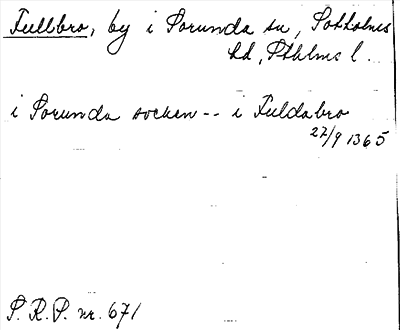 Fullbro, by i Sorunda sn, Sotholms
hd, Sthlms l.
i Sorunda socken -- i Fuldabro
27/9 1365
S.R.P. nr. 671